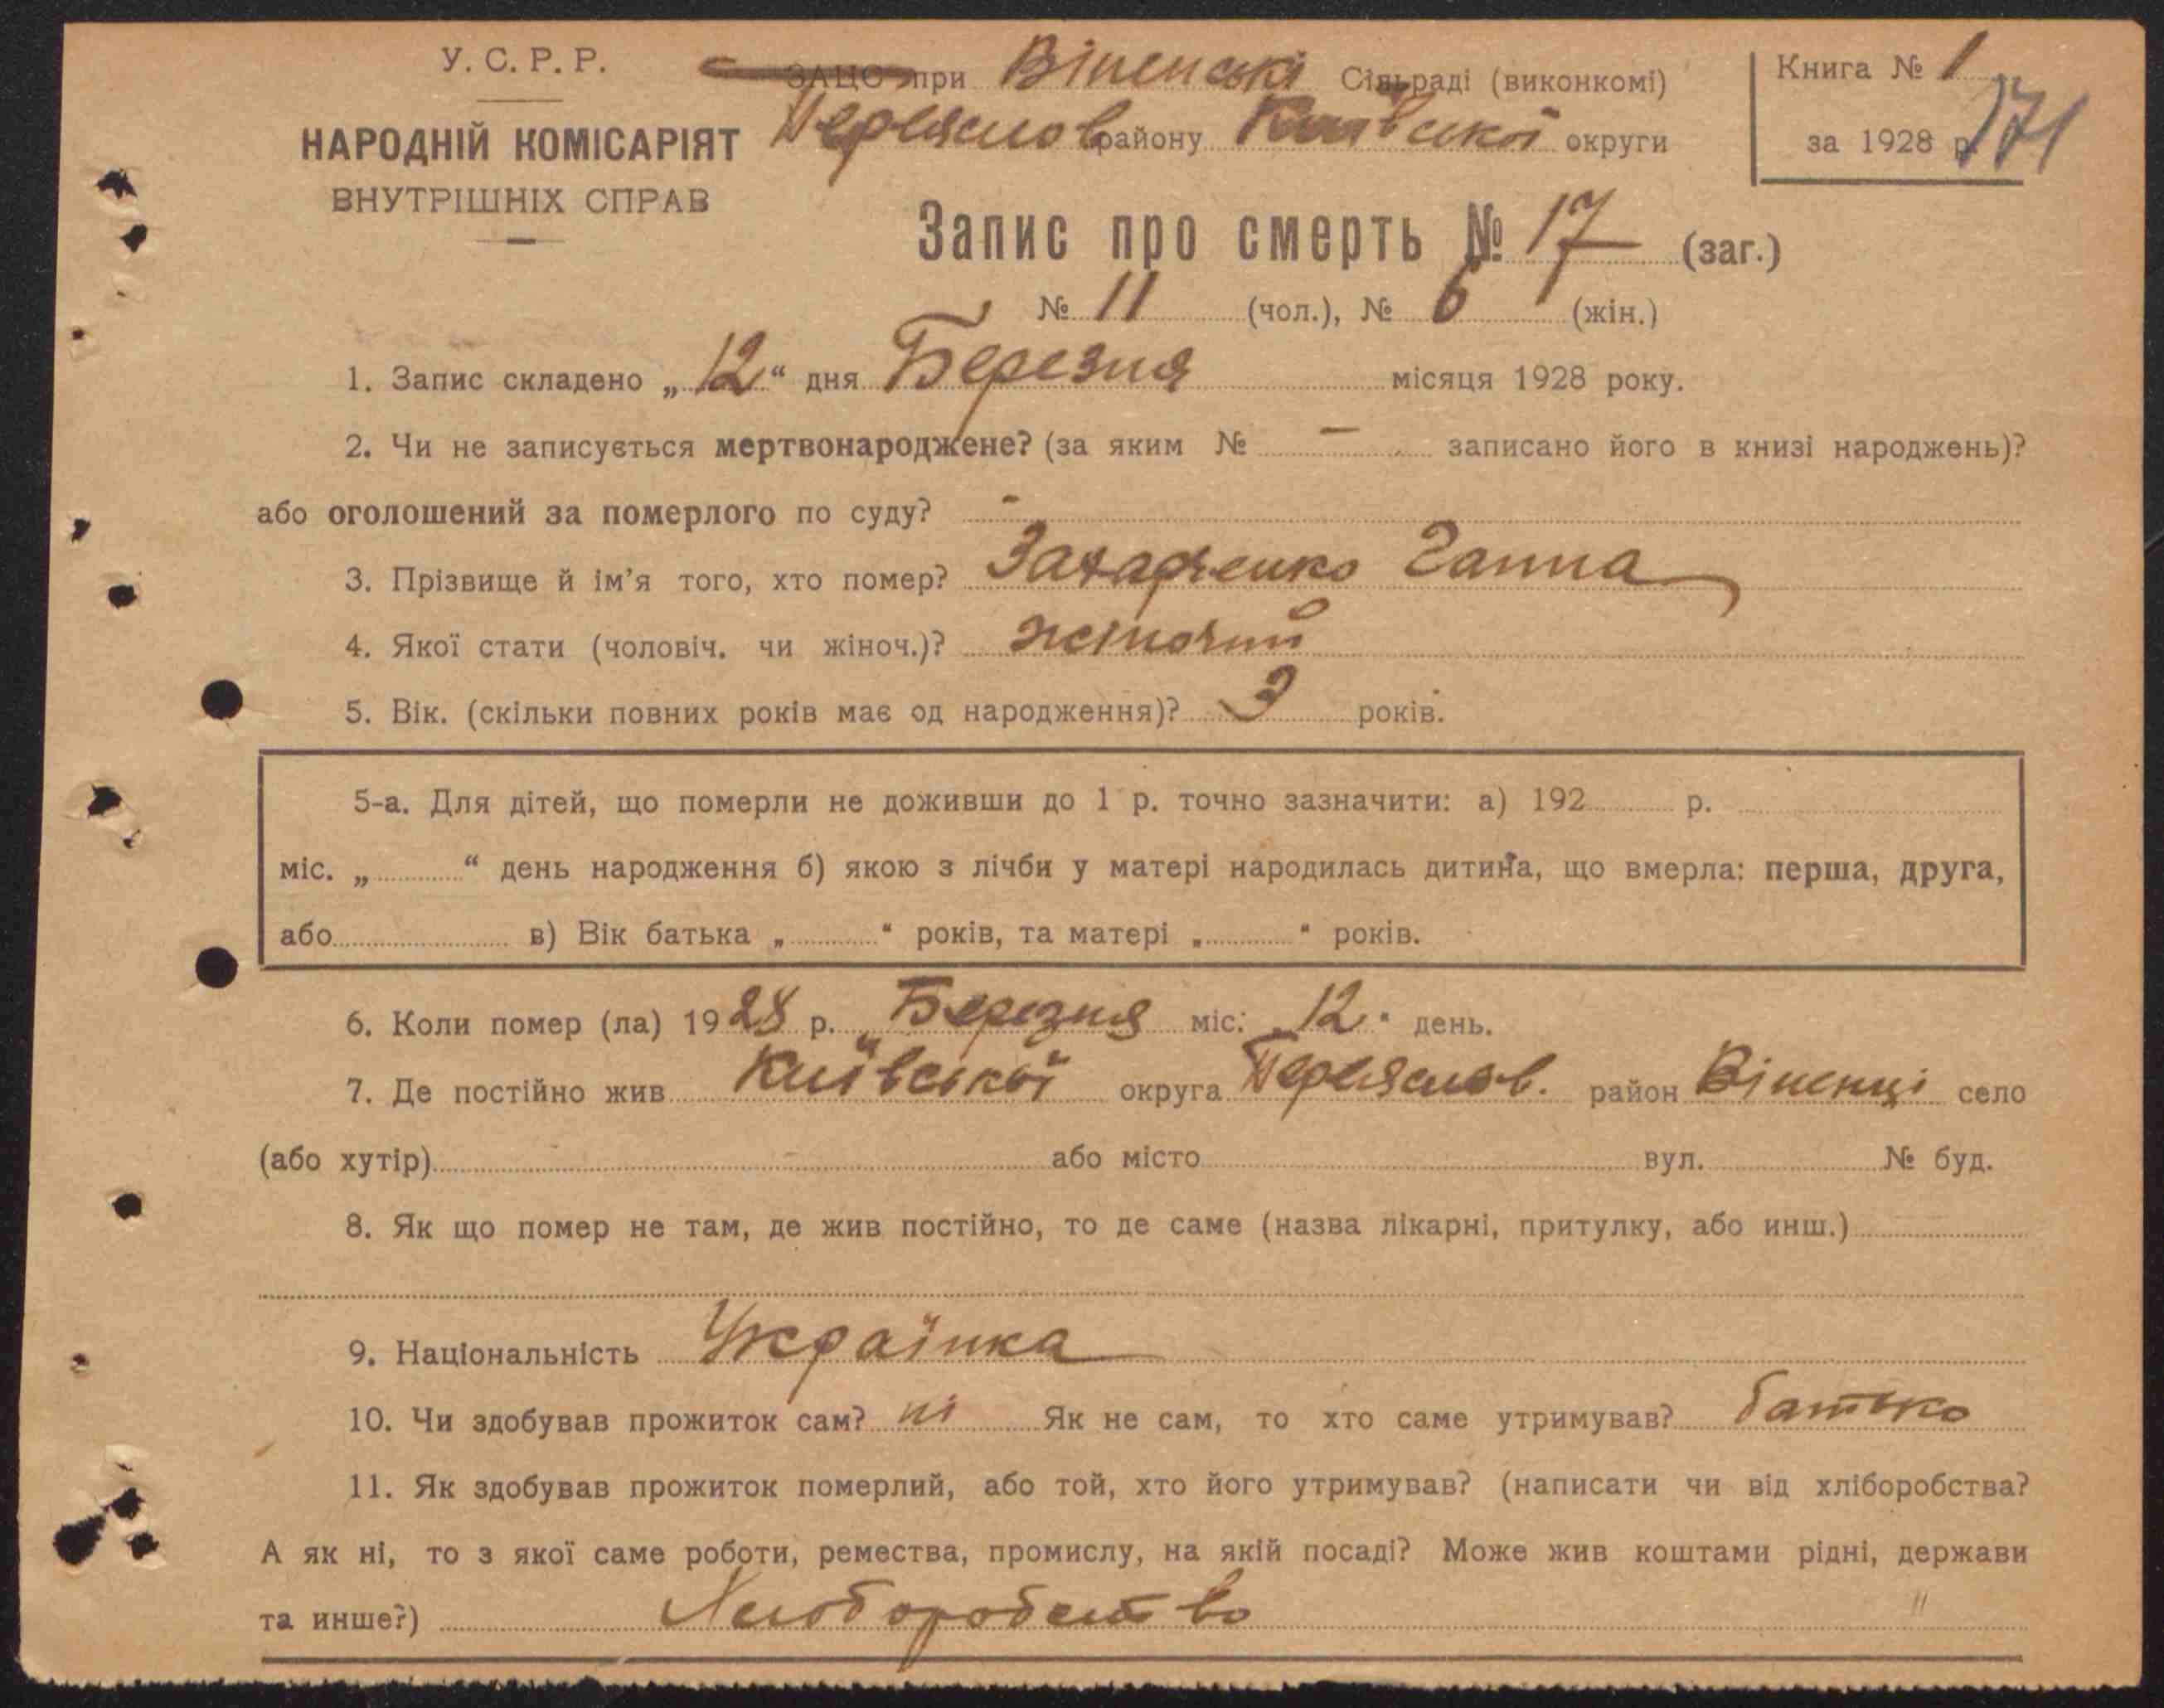 У. С. Р. Р.
НАРОДНІЙ КОМІСАРІЯТ
ВНУТРІШНІХ СПРАВ
ЗАЦС при Віненські Сільраді (виконкомі)
Переяслов району Київської округи
Книга № 1
за 1928 р. 171
Запис про смерть № 17 (заг.)
№ 11 (чол.), № 6 (жін.)
1. Запис складено „12“ дня Березня місяця 1928 року.
2. Чи не записується мертвонароджене? (за яким № — записано його в книзі народжень)?
або оголошений за померлого по суду? -
3. Прізвище й ім’я того, хто помер? Захарченко Ганна
4. Якої стати (чоловіч. чи жіноч.)? жіночий
5. Вік. (скільки повних років має од народження)? 3 років.
5-а. Для дітей, що померли не доживши до 1 р. точно зазначити: а) 192 р.
міс. „ “ день народження б) якою з лічби у матері народилась дитина, що вмерла: перша, друга,
або в) Вік батька „ “ років, та матері „ “ років.
6. Коли помер (ла) 1928 р. „Березня міс. 12“ день.
7. Де постійно жив Київської округа Переяслов. район Віненці село
(або хутір) або місто вул. № буд.
8. Як що помер не там, де жив постійно, то де саме (назва лікарні, притулку, або инш.)
9. Національність Українка
10. Чи здобував прожиток сам? ні Як не сам, то хто саме утримував? батько
11. Як здобував прожиток померлий, або той, хто його утримував? (написати чи від хліборобства?
А як ні, то з якої саме роботи, ремества, промислу, на якій посаді? Може жив коштами рідні, держави
та инше?) Хліоборобство